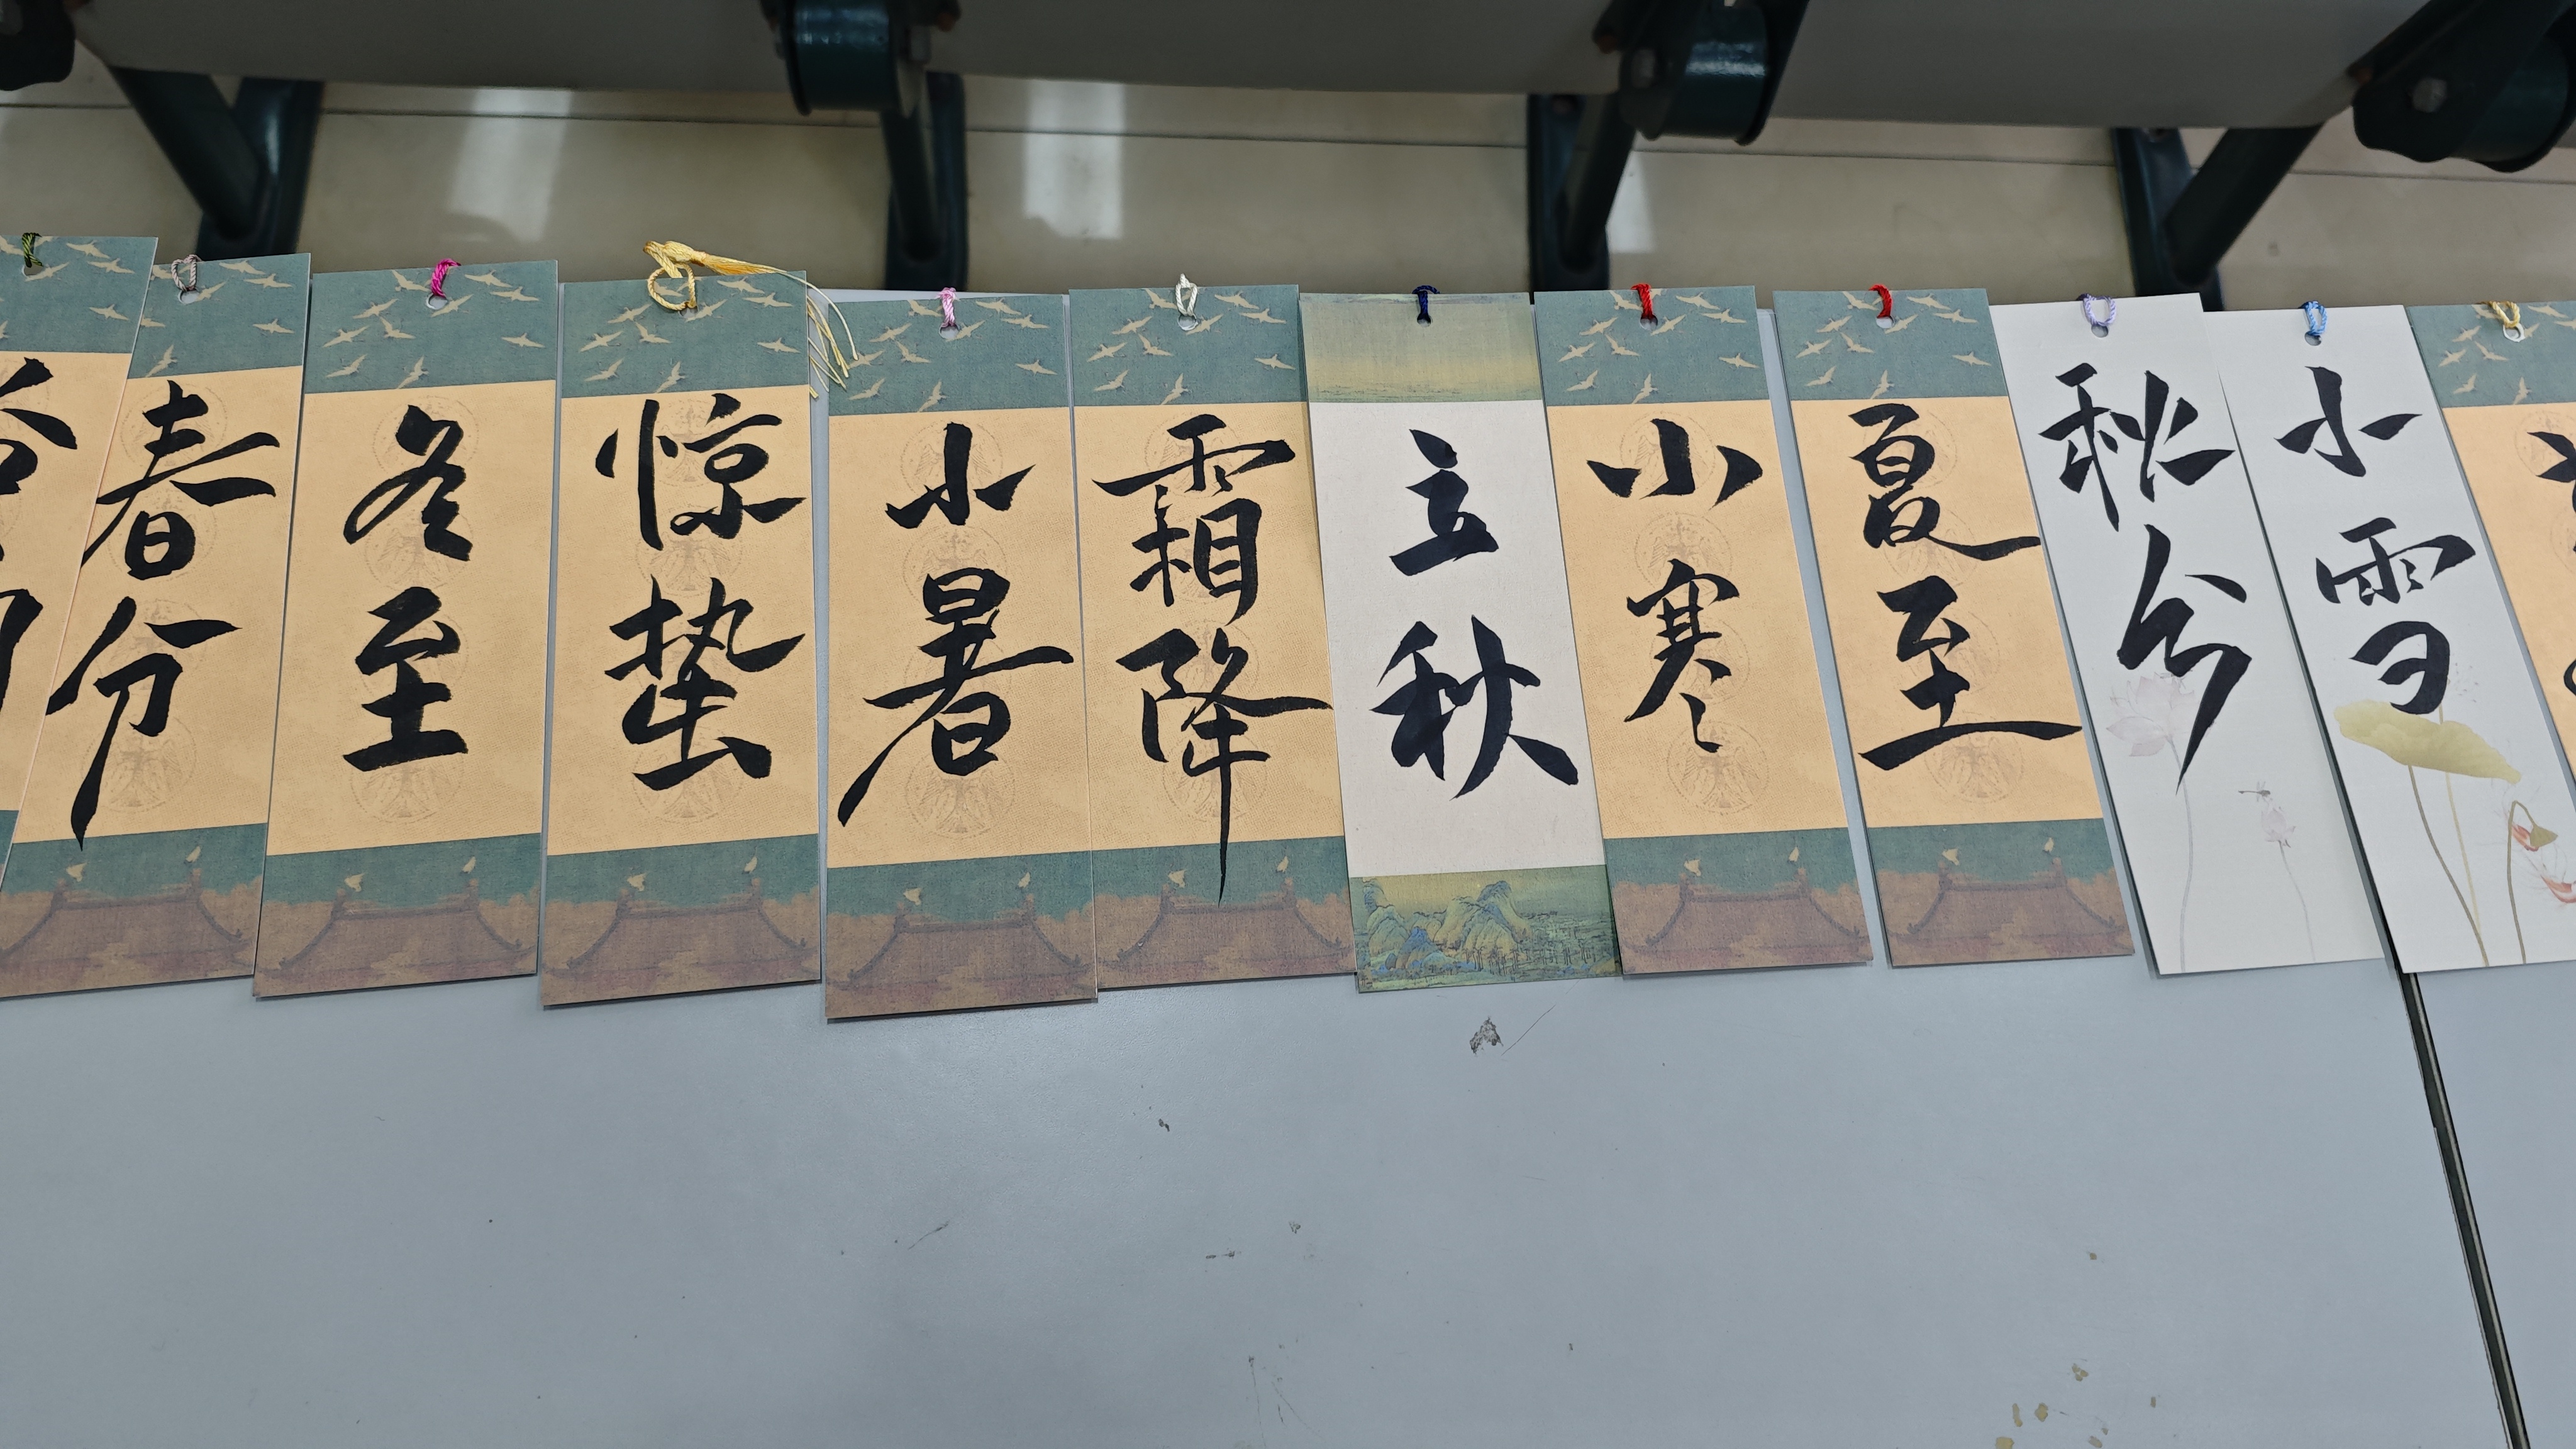 春分
冬至
惊蛰
小暑
霜降
立秋
小寒
夏至
秋分
小雪